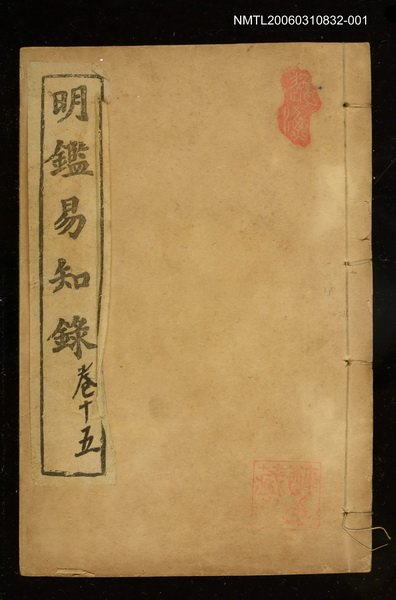 NMTL20060310832-001
明鑑易知錄
卷十五